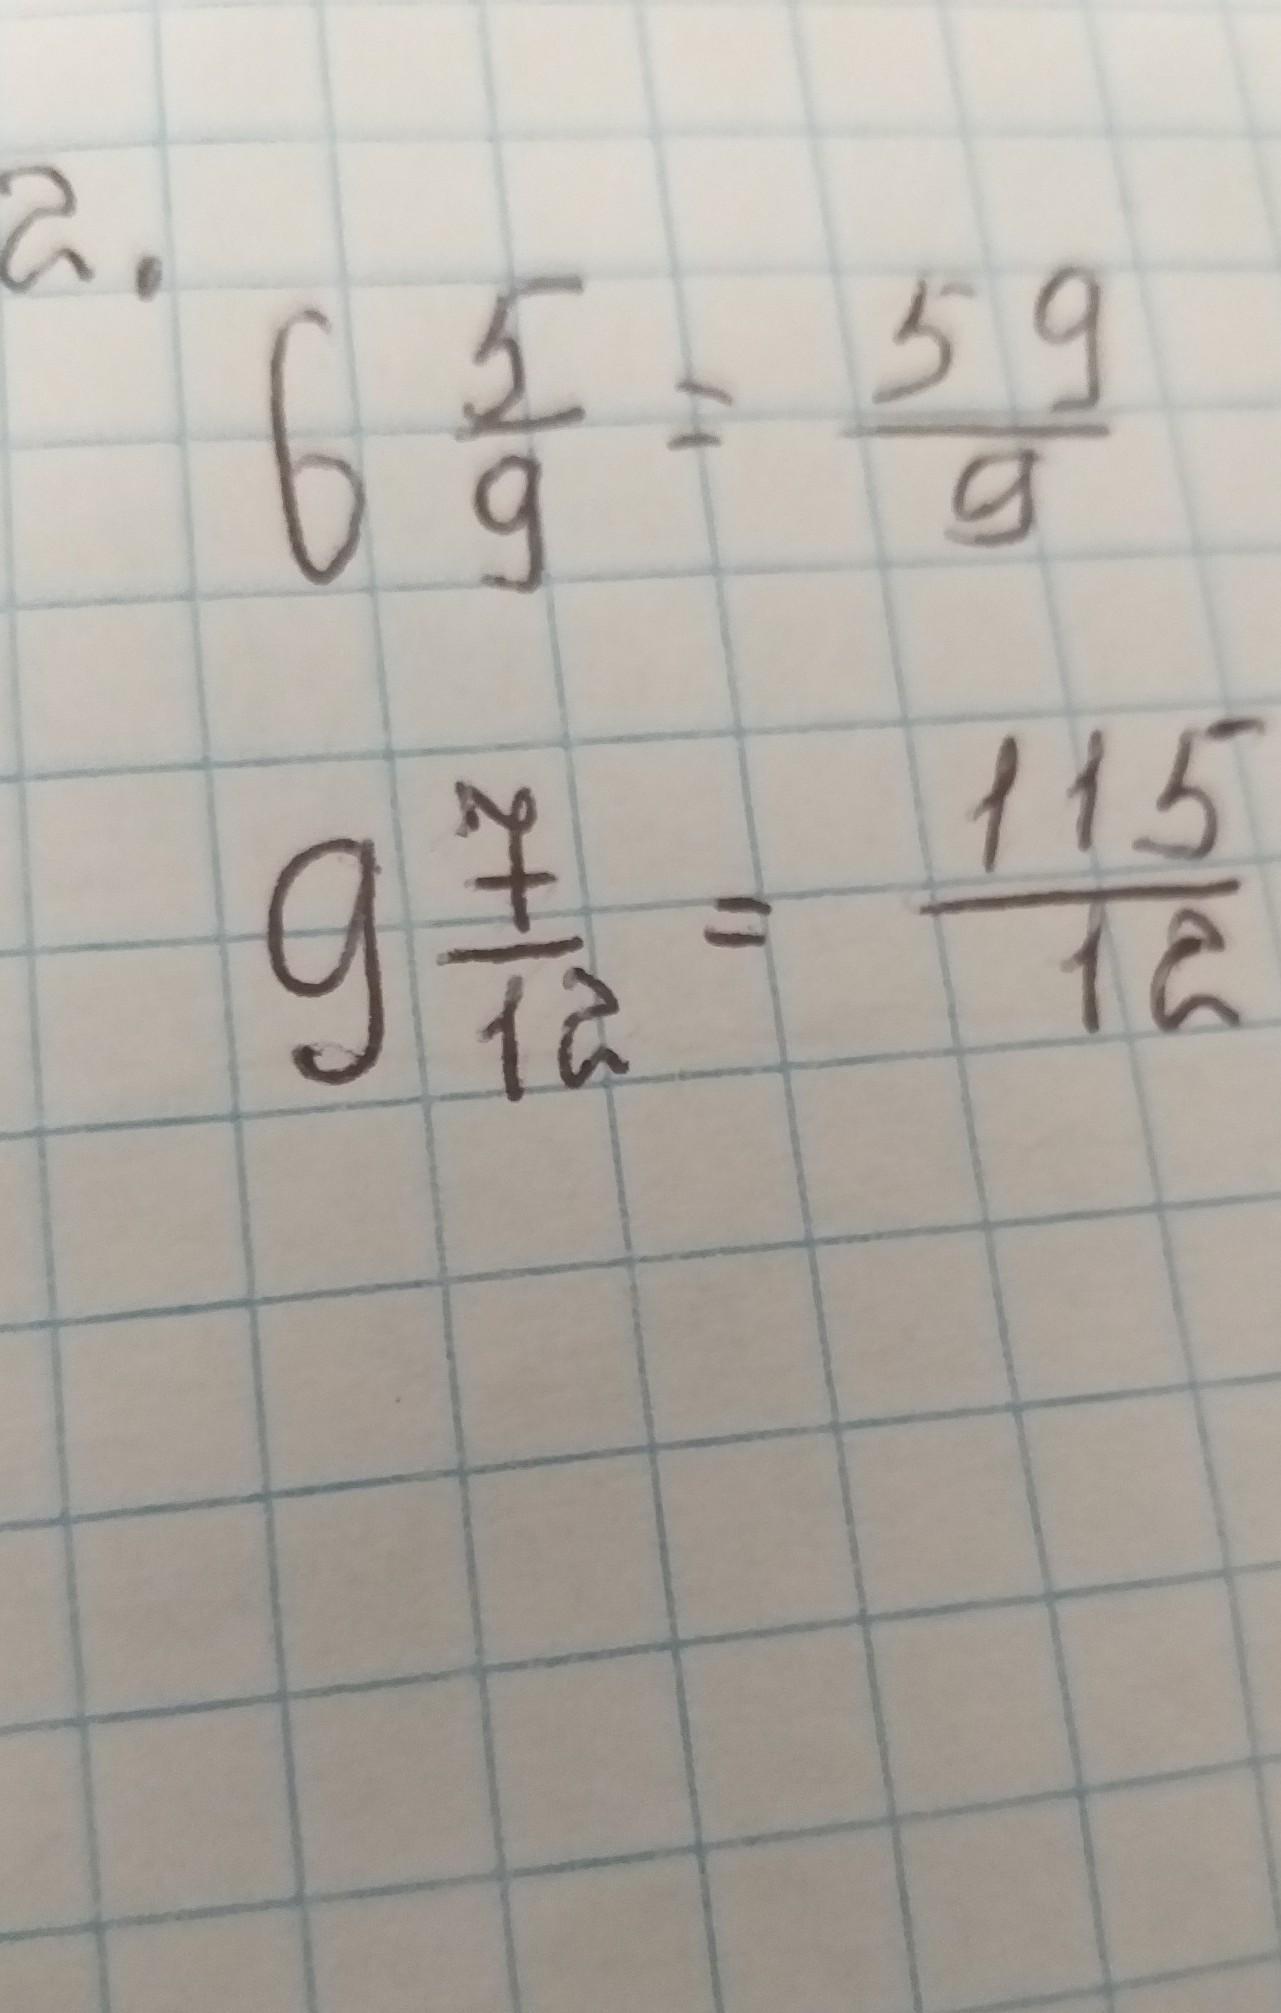 2.
6 5/9 = 59/9
9 7/12 = 115/12